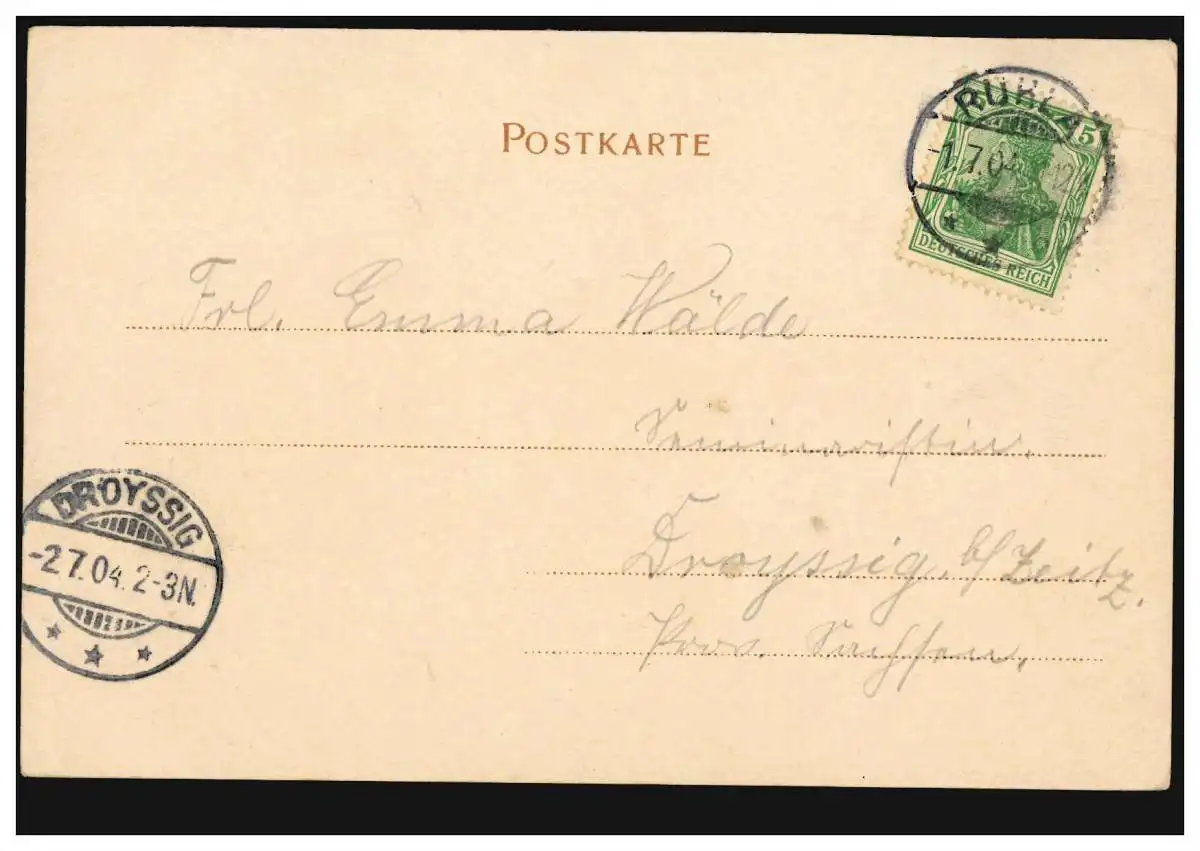 POSTKARTE
RUHLA
-1.7.04 12
5
DEUTSCHES REICH
Frl. Emma Wälde
Seminaristin,
Droyssig b/Zeitz.
Prov. Sachsen,
DROYSSIG
-2.7.04. 2-3N.